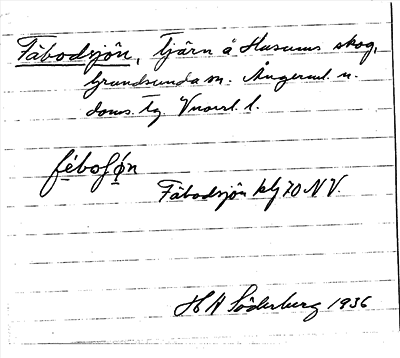 Fäbodsjön, tjärn å Husums skog,
Grundsunda sn. Ångerml. n.
doms. tg Vnorrl. l.
fébosjǿn
Fäbodsjön klj 70 NV.
H A Söderberg 1936